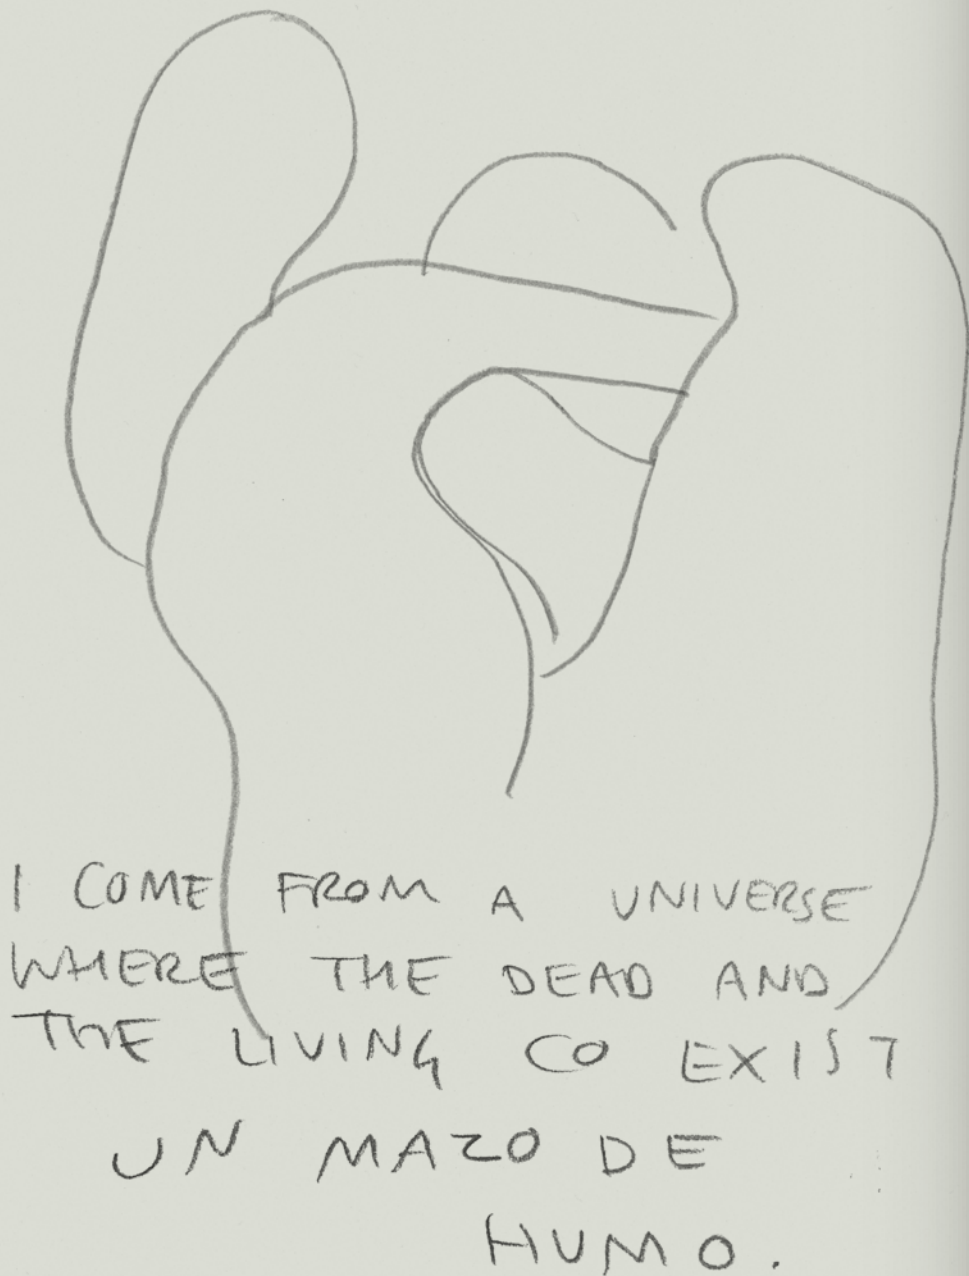 I COME FROM A UNIVERSE
WHERE THE DEAD AND
THE LIVING CO EXIST
UN MAZO DE
HUMO.